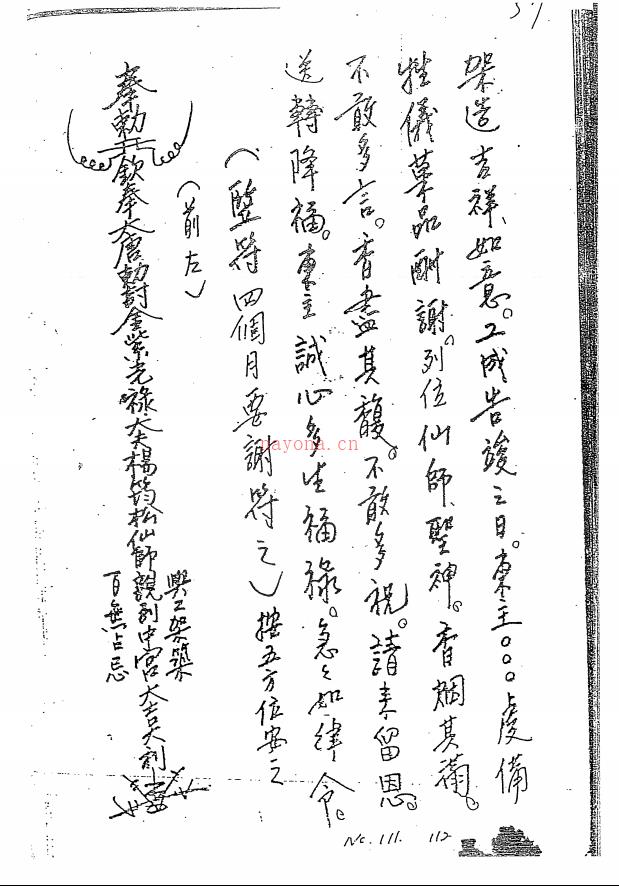 架造吉祥、如意。工成告竣之日。東主○○○虔備
牲儀菓品酬謝。列位仙師、聖神。香烟其滿。
不敢多言。香盡其馥。不敢多祝。請來留恩。
送轉降福。東主誠心多生福祿。急々如律令。
（竪符四個月要謝符之）按五方位安之
（前左）
奉勅 欽奉大唐勅封金紫光祿大夫楊筠松仙師親到中宮大吉大利
興工架築
百無占忌
57
No. 111. 112
nayona.cn